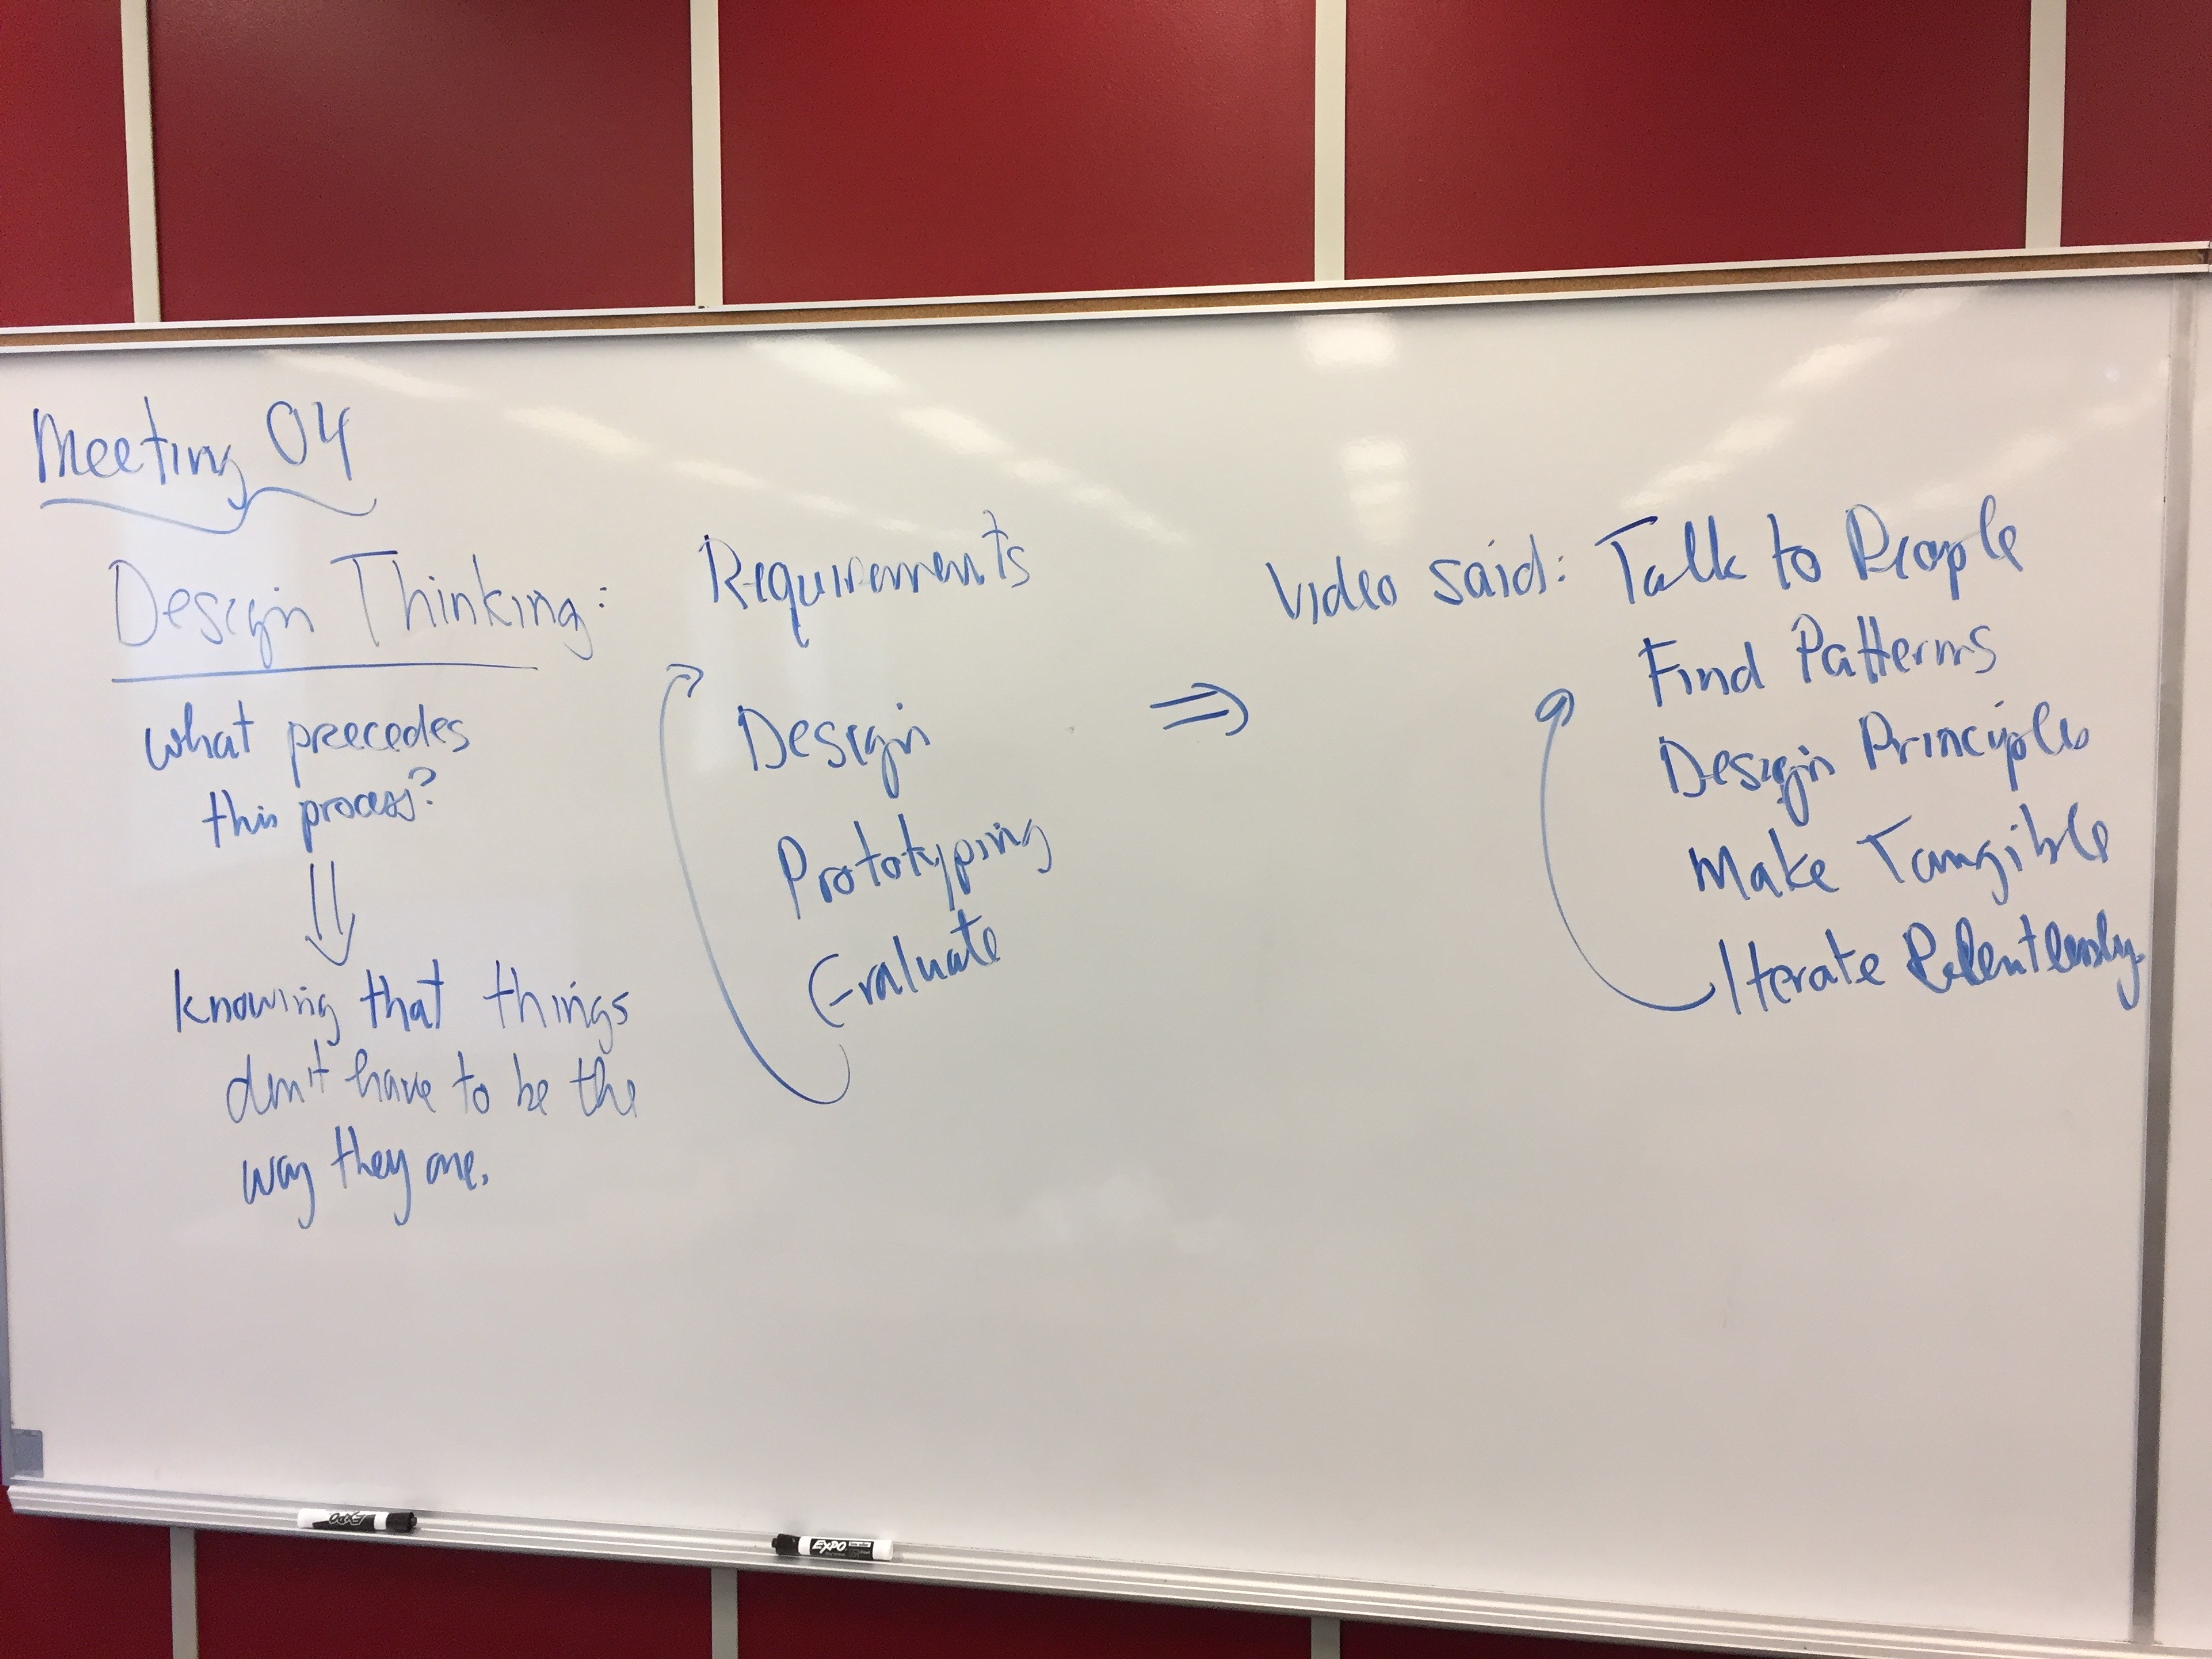 Meeting 04
Design Thinking:
what precedes
this process?
knowing that things
don't have to be the
way they are.
Requirements
Design
Prototyping
Evaluate
⇒
Video said: Talk to People
Find Patterns
Design Principles
Make Tangible
Iterate Relentlessly
EXPO
EXPO